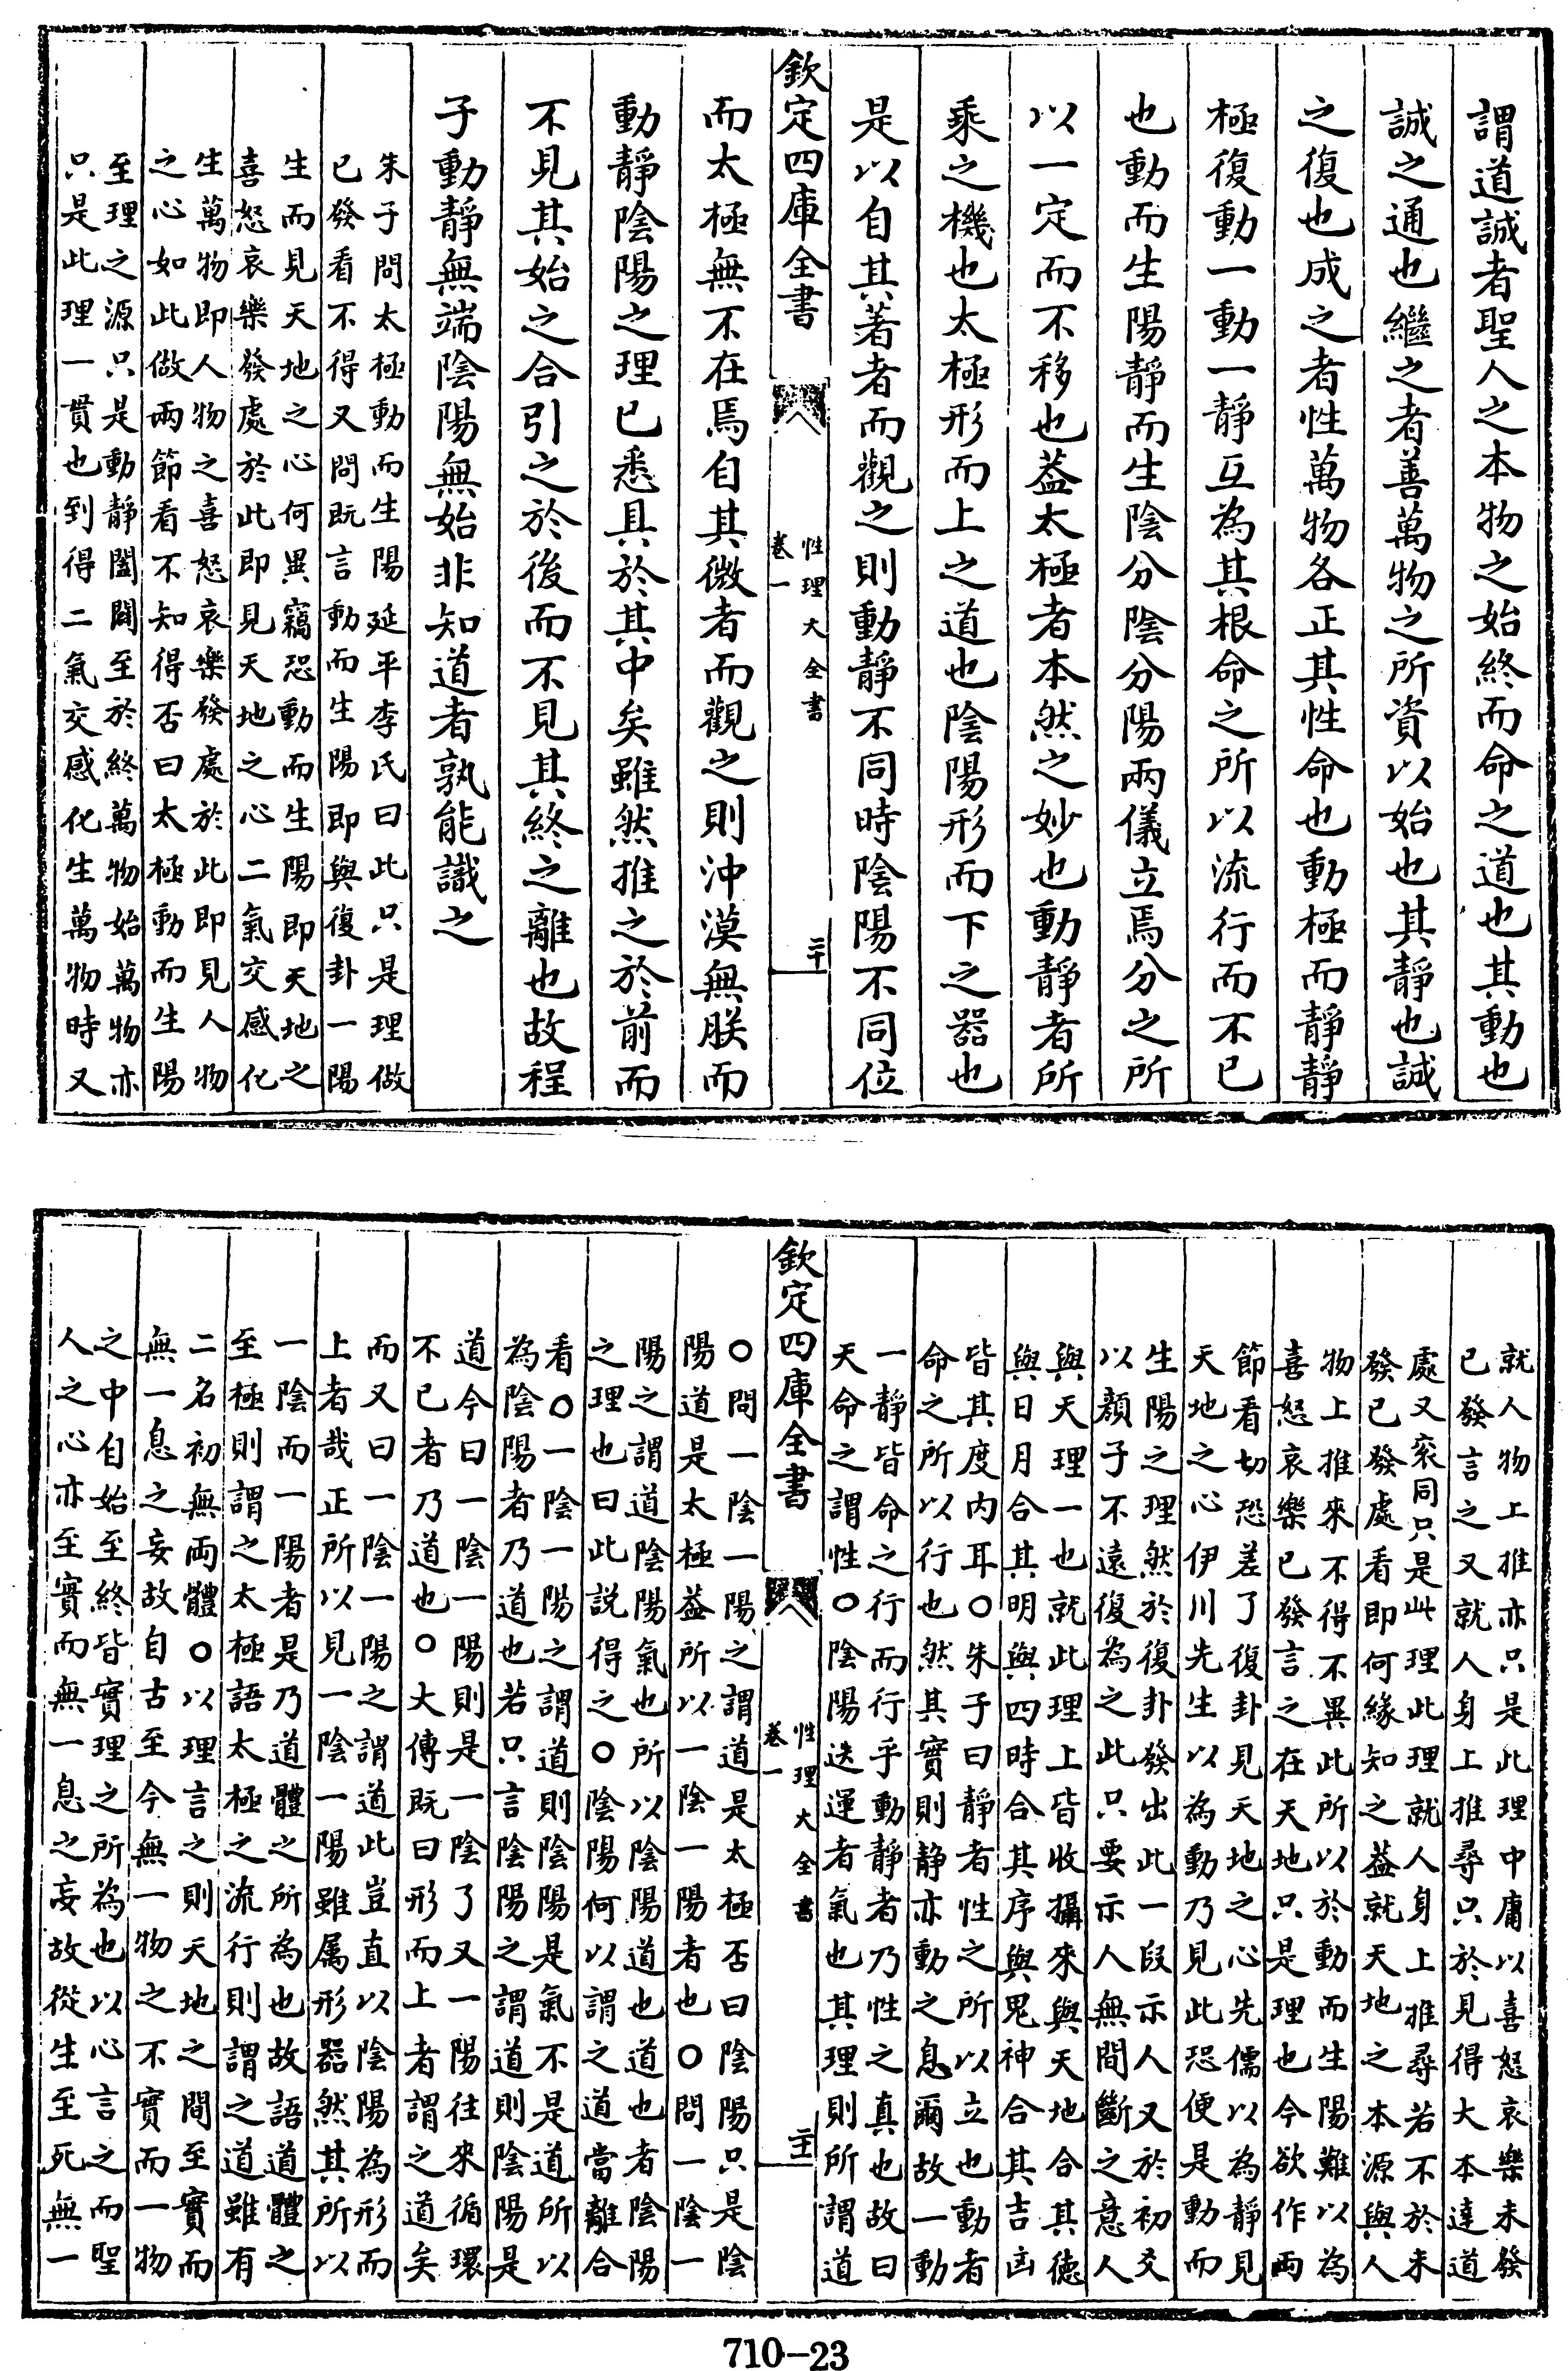 謂道誠者聖人之本物之始終而命之道也其動也
誠之通也繼之者善萬物之所資以始也其靜也誠
之復也成之者性萬物各正其性命也動極而靜靜
極復動一動一靜互為其根命之所以流行而不已
也動而生陽靜而生陰分陰分陽兩儀立焉分之所
以一定而不移也葢太極者本然之妙也動靜者所
乘之機也太極形而上之道也陰陽形而下之器也
是以自其著者而觀之則動靜不同時陰陽不同位
欽定四庫全書
性理大全書
卷一
二十
而太極無不在焉自其微者而觀之則沖漠無朕而
動靜陰陽之理已悉具於其中矣雖然推之於前而
不見其始之合引之於後而不見其終之離也故程
子動靜無端陰陽無始非知道者孰能識之
朱子問太極動而生陽延平李氏曰此只是理做
已發看不得又問既言動而生陽即與復卦一陽
生而見天地之心何異竊恐動而生陽即天地之
喜怒哀樂發處於此即見天地之心二氣交感化
生萬物即人物之喜怒哀樂發處於此即見人物
之心如此做兩節看不知得否曰太極動而生陽
至理之源只是動靜闔闢至於終萬物始萬物亦
只是此理一貫也到得二氣交感化生萬物時又
就人物上推亦只是此理中庸以喜怒哀樂未發
已發言之又就人身上推尋只於見得大本達道
處又衮同只是此理此理就人身上推尋若不於未
發已發處看即何緣知之葢就天地之本源與人
物上推來不得不異此所以於動而生陽難以為
喜怒哀樂已發言之在天地只是理也今欲作兩
節看切恐差了復卦見天地之心先儒以為靜見
天地之心伊川先生以為動乃見此恐便是動而
生陽之理然於復卦發出此一段示人又於初爻
以顏子不遠復為之此只要示人無間斷之意人
與天理一也就此理上皆收攝來與天地合其德
與日月合其明與四時合其序與鬼神合其吉凶
皆其度内耳○朱子曰靜者性之所以立也動者
命之所以行也然其實則静亦動之息爾故一動
一静皆命之行而行乎動靜者乃性之真也故曰
天命之謂性○陰陽迭運者氣也其理則所謂道
欽定四庫全書
性理大全書
卷一
二十一
○問一陰一陽之謂道是太極否曰陰陽只是陰
陽道是太極葢所以一陰一陽者也○問一陰一
陽之謂道陰陽氣也所以陰陽道也道也者陰陽
之理也曰此説得之○陰陽何以謂之道當離合
看○一陰一陽之謂道則陰陽是氣不是道所以
為陰陽者乃道也若只言陰陽之謂道則陰陽是
道今曰一陰一陽則是一陰了又一陽往來循環
不已者乃道也○大傳既曰形而上者謂之道矣
而又曰一陰一陽之謂道此豈直以陰陽為形而
上者哉正所以見一陰一陽雖属形器然其所以
一陰而一陽者是乃道體之所為也故語道體之
至極則謂之太極語太極之流行則謂之道雖有
二名初無兩體○以理言之則天地之間至實而
無一息之妄故自古至今無一物之不實而一物
之中自始至終皆實理之所為也以心言之而聖
人之心亦至實而無一息之妄故從生至死無一
710-23